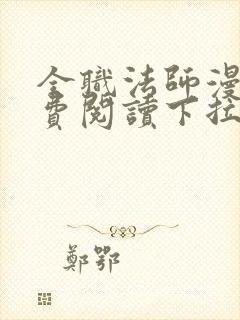 全職法師漫
費閱讀下拉
鄭鄂